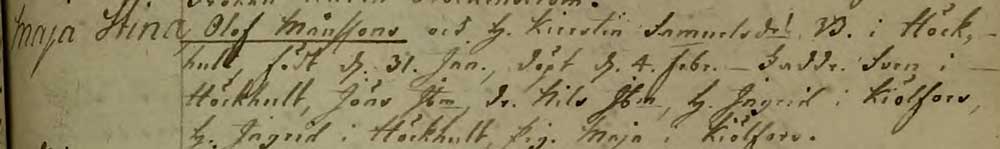 Maja Stina, Olof Månssons och H. Kierstin Samuelsdr. B. i Höck-
hult, född d. 31. Jan., döpt d. 4. Febr. — Faddr. Sven i
Höckhult, Jöns Ibm, dr. Nils Ibm, H. Ingrid i Kiölfors,
H. Ingrid i Höckhult, pig. Maja i Kiölfors.